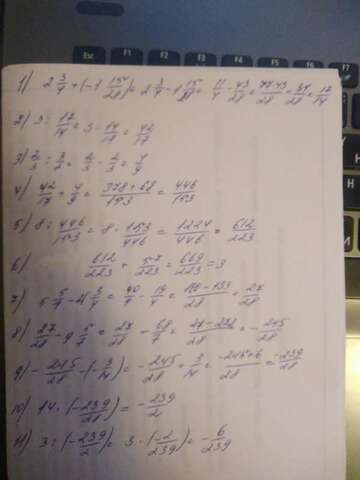 Esc F1 F2 F3 F4 F5 F6 F7
1) 2 3/4 + (-1 15/28) = 2 3/4 - 1 15/28 = 11/4 - 43/28 = 77-43/28 = 34/28 = 17/14
2) 3 : 17/14 = 3 · 14/17 = 42/17
3) 2/3 : 3/2 = 2/3 · 2/3 = 4/9
4) 42/17 + 4/9 = 378+68/153 = 446/153
5) 8 : 446/153 = 8 · 153/446 = 1224/446 = 612/223
6) 612/223 + 57/223 = 669/223 = 3
7) 5 5/7 - 4 3/4 = 40/7 - 19/4 = 160-133/28 = 27/28
8) 27/28 - 9 5/7 = 27/28 - 68/7 = 27-272/28 = - 245/28
9) - 245/28 - (- 3/14) = - 245/28 + 3/14 = -245+6/28 = -239/28
10) 14 · (- 239/28) = - 239/2
11) 3 : (- 239/2) = 3 · (- 2/239) = - 6/239